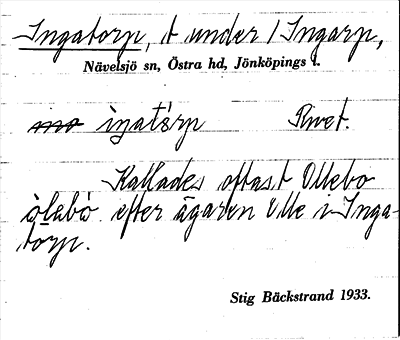 Ingatorp, t under 1 Ingarp,
Nävelsjö sn, Östra hd, Jönköpings l.
ińatśrp Rivet.
Kallades oftast Ollebo
ölebò efter ägaren Olle i Inga-
torp.
Stig Bäckstrand 1933.